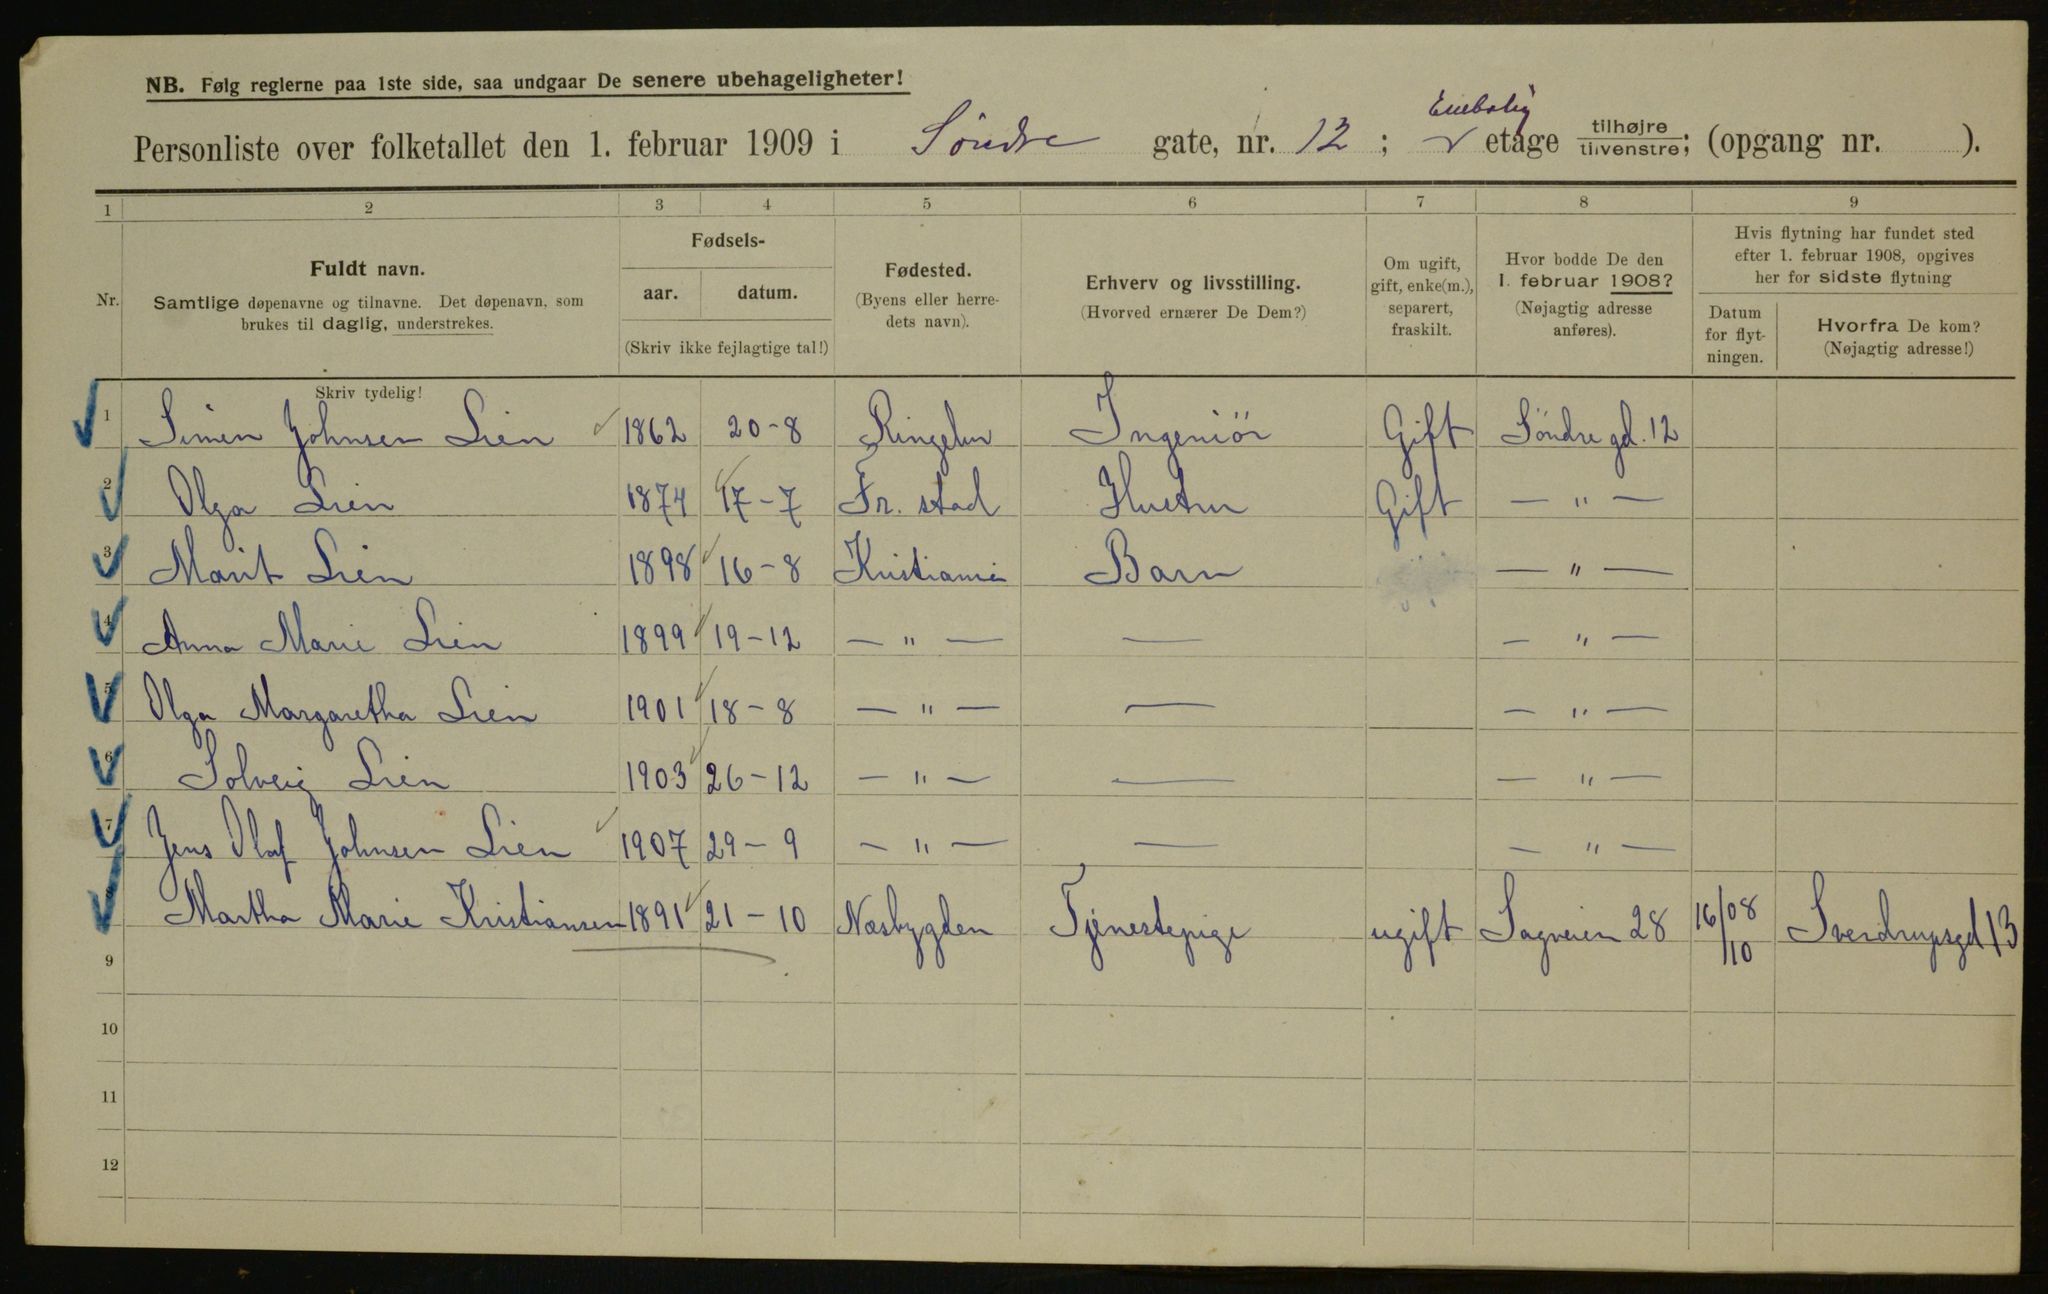 NB. Følg reglerne paa 1ste side, saa undgaar De senere ubehageligheter!
Enebolig
Personliste over folketallet den 1. februar 1909 i Söndre gate, nr. 12; etage tilhøjre/tilvenstre; (opgang nr. ).
1 2 3 4 5 6 7 8 9
Nr.
Fuldt navn.
Samtlige døpenavne og tilnavne. Det døpenavn, som
brukes til daglig, understrekes.
Skriv tydelig!
Fødsels-
aar. datum.
(Skriv ikke fejlagtige tal!)
Fødested.
(Byens eller herre-
dets navn).
Erhverv og livsstilling.
(Hvorved ernærer De Dem?)
Om ugift,
gift, enke(m.),
separert,
fraskilt.
Hvor bodde De den
1. februar 1908?
(Nøjagtig adresse
anføres).
Hvis flytning har fundet sted
efter 1. februar 1908, opgives
her for sidste flytning
Datum
for flyt-
ningen.
Hvorfra De kom?
(Nøjagtig adresse!)
1 Simen Johnsen Lien 1862 20-8 Ringebu Ingeniör Gift Söndre gd. 12
2 Olga Lien 1874 17-7 Fr. stad Hustru Gift — " —
3 Marit Lien 1898 16-8 Kristiania Barn — " —
4 Anna Marie Lien 1899 19-12 — " — — — " —
5 Olga Margaretha Lien 1901 18-8 — " — — — " —
6 Solveig Lien 1903 26-12 — " — — — " —
7 Jens Olaf Johnsen Lien 1907 29-9 — " — — — " —
8 Martha Marie Kristiansen 1891 21-10 Næsbygden Tjenestepige ugift Sagveien 28 16/10 08 Sverdrupsgd 13
9
10
11
12